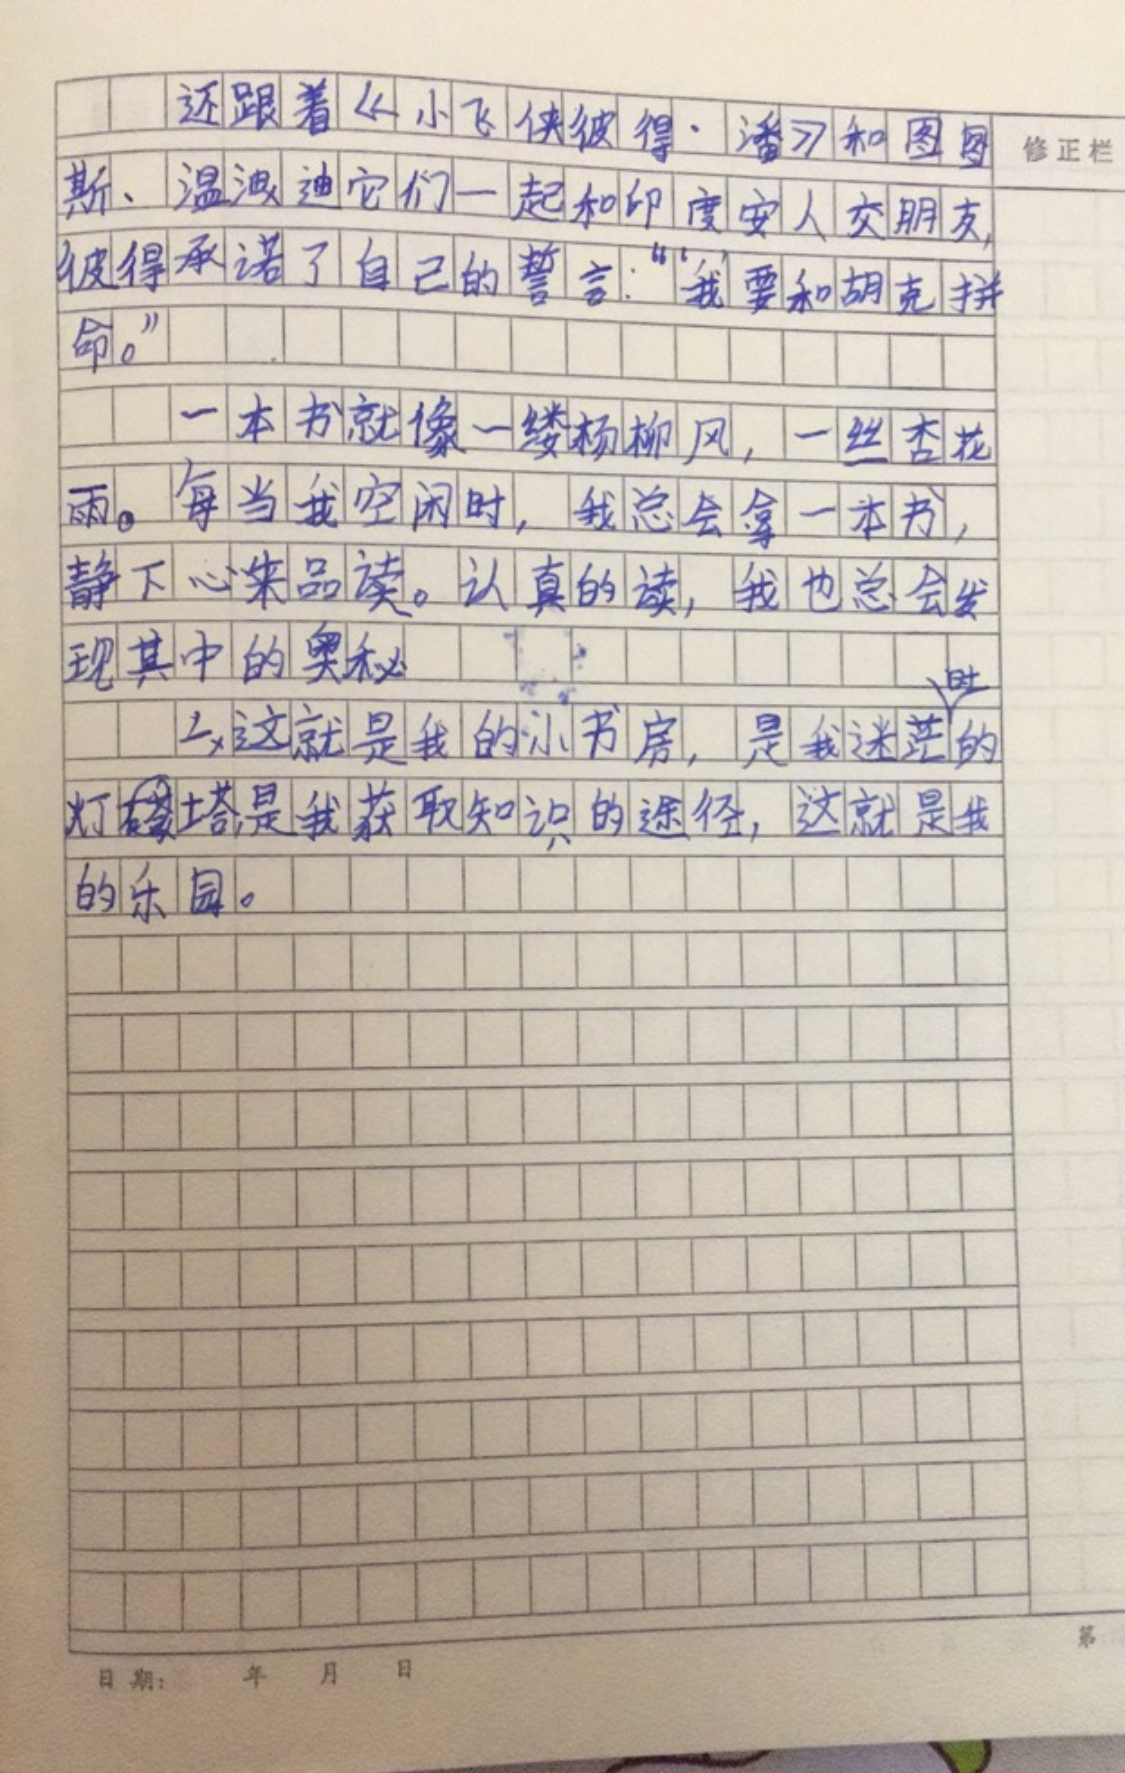 还跟着《小飞侠彼得·潘》和图图
修正栏
斯、温迪它们一起和印度安人交朋友,
彼得承诺了自己的誓言:“我要和胡克拼
命。”
一本书就像一缕杨柳风,一丝杏花
雨。每当我空闲时,我总会拿一本书,
静下心来品读。认真的读,我也总会发
现其中的奥秘
这就是我的小书房,是我迷茫时的
灯塔,是我获取知识的途径,这就是我
的乐园。
日期: 年 月 日
第